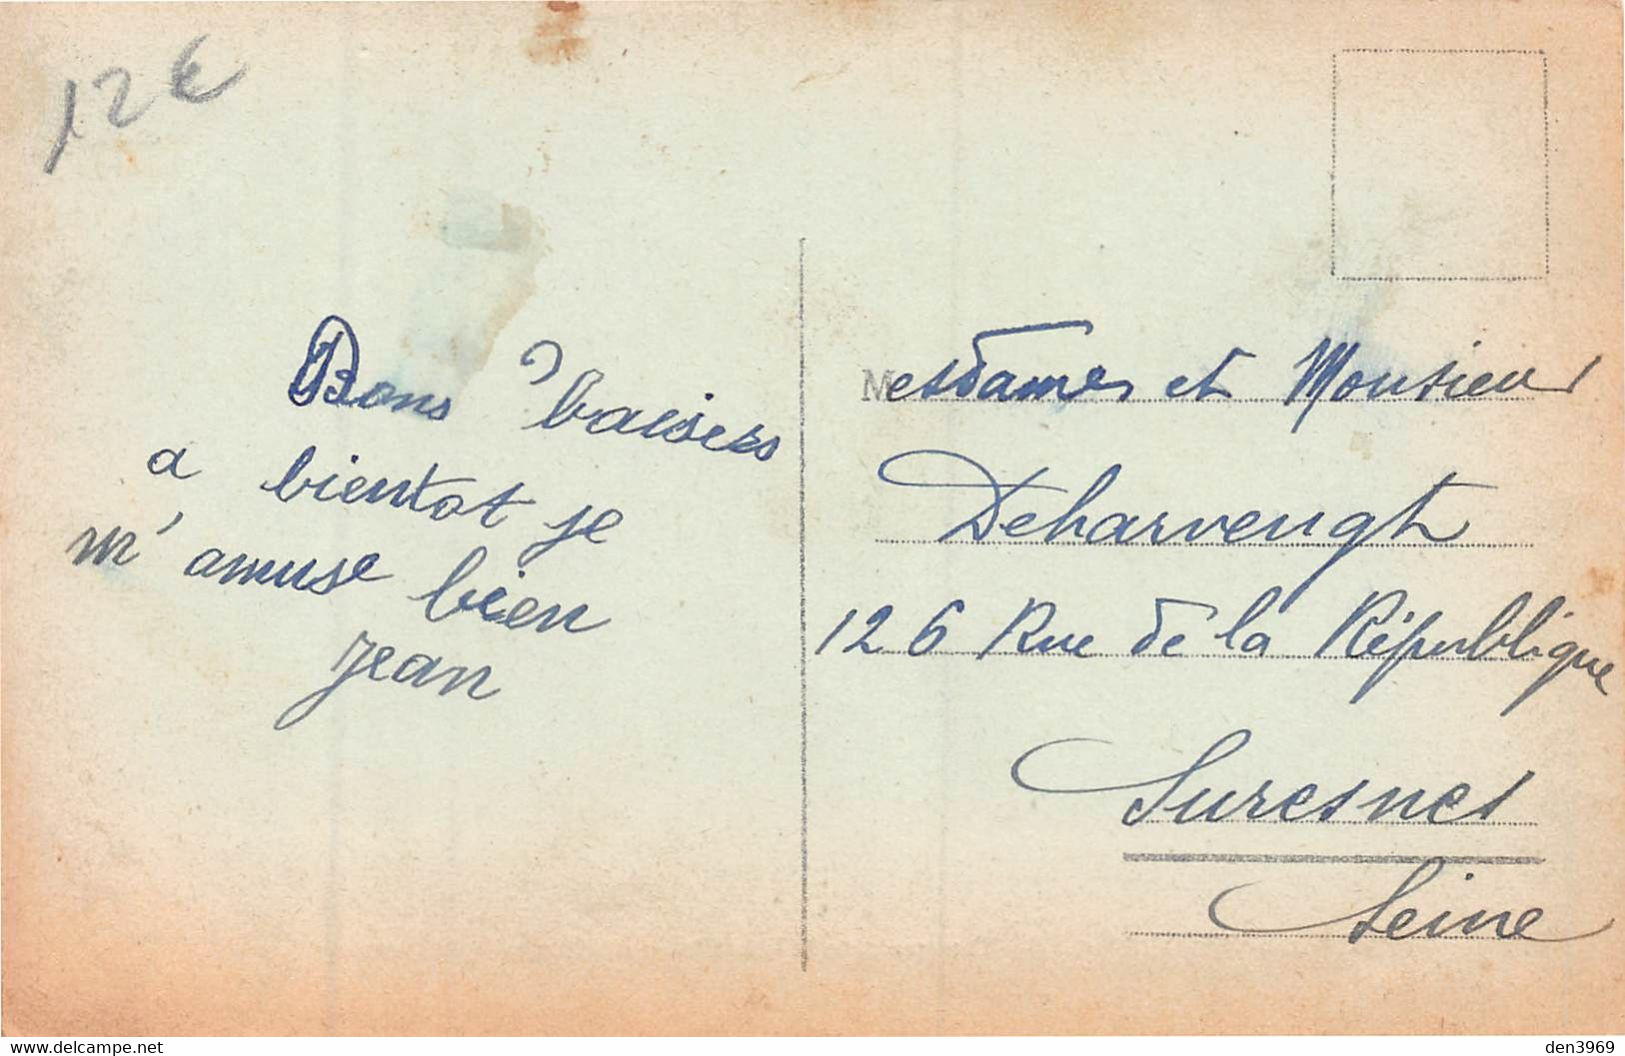 12 €
Bons baisers
a bientot je
m'amuse bien
Jean
Mesdames et Monsieur
Deharvengt
126 Rue de la République
Suresnes
Seine
www.delcampe.net
den3969